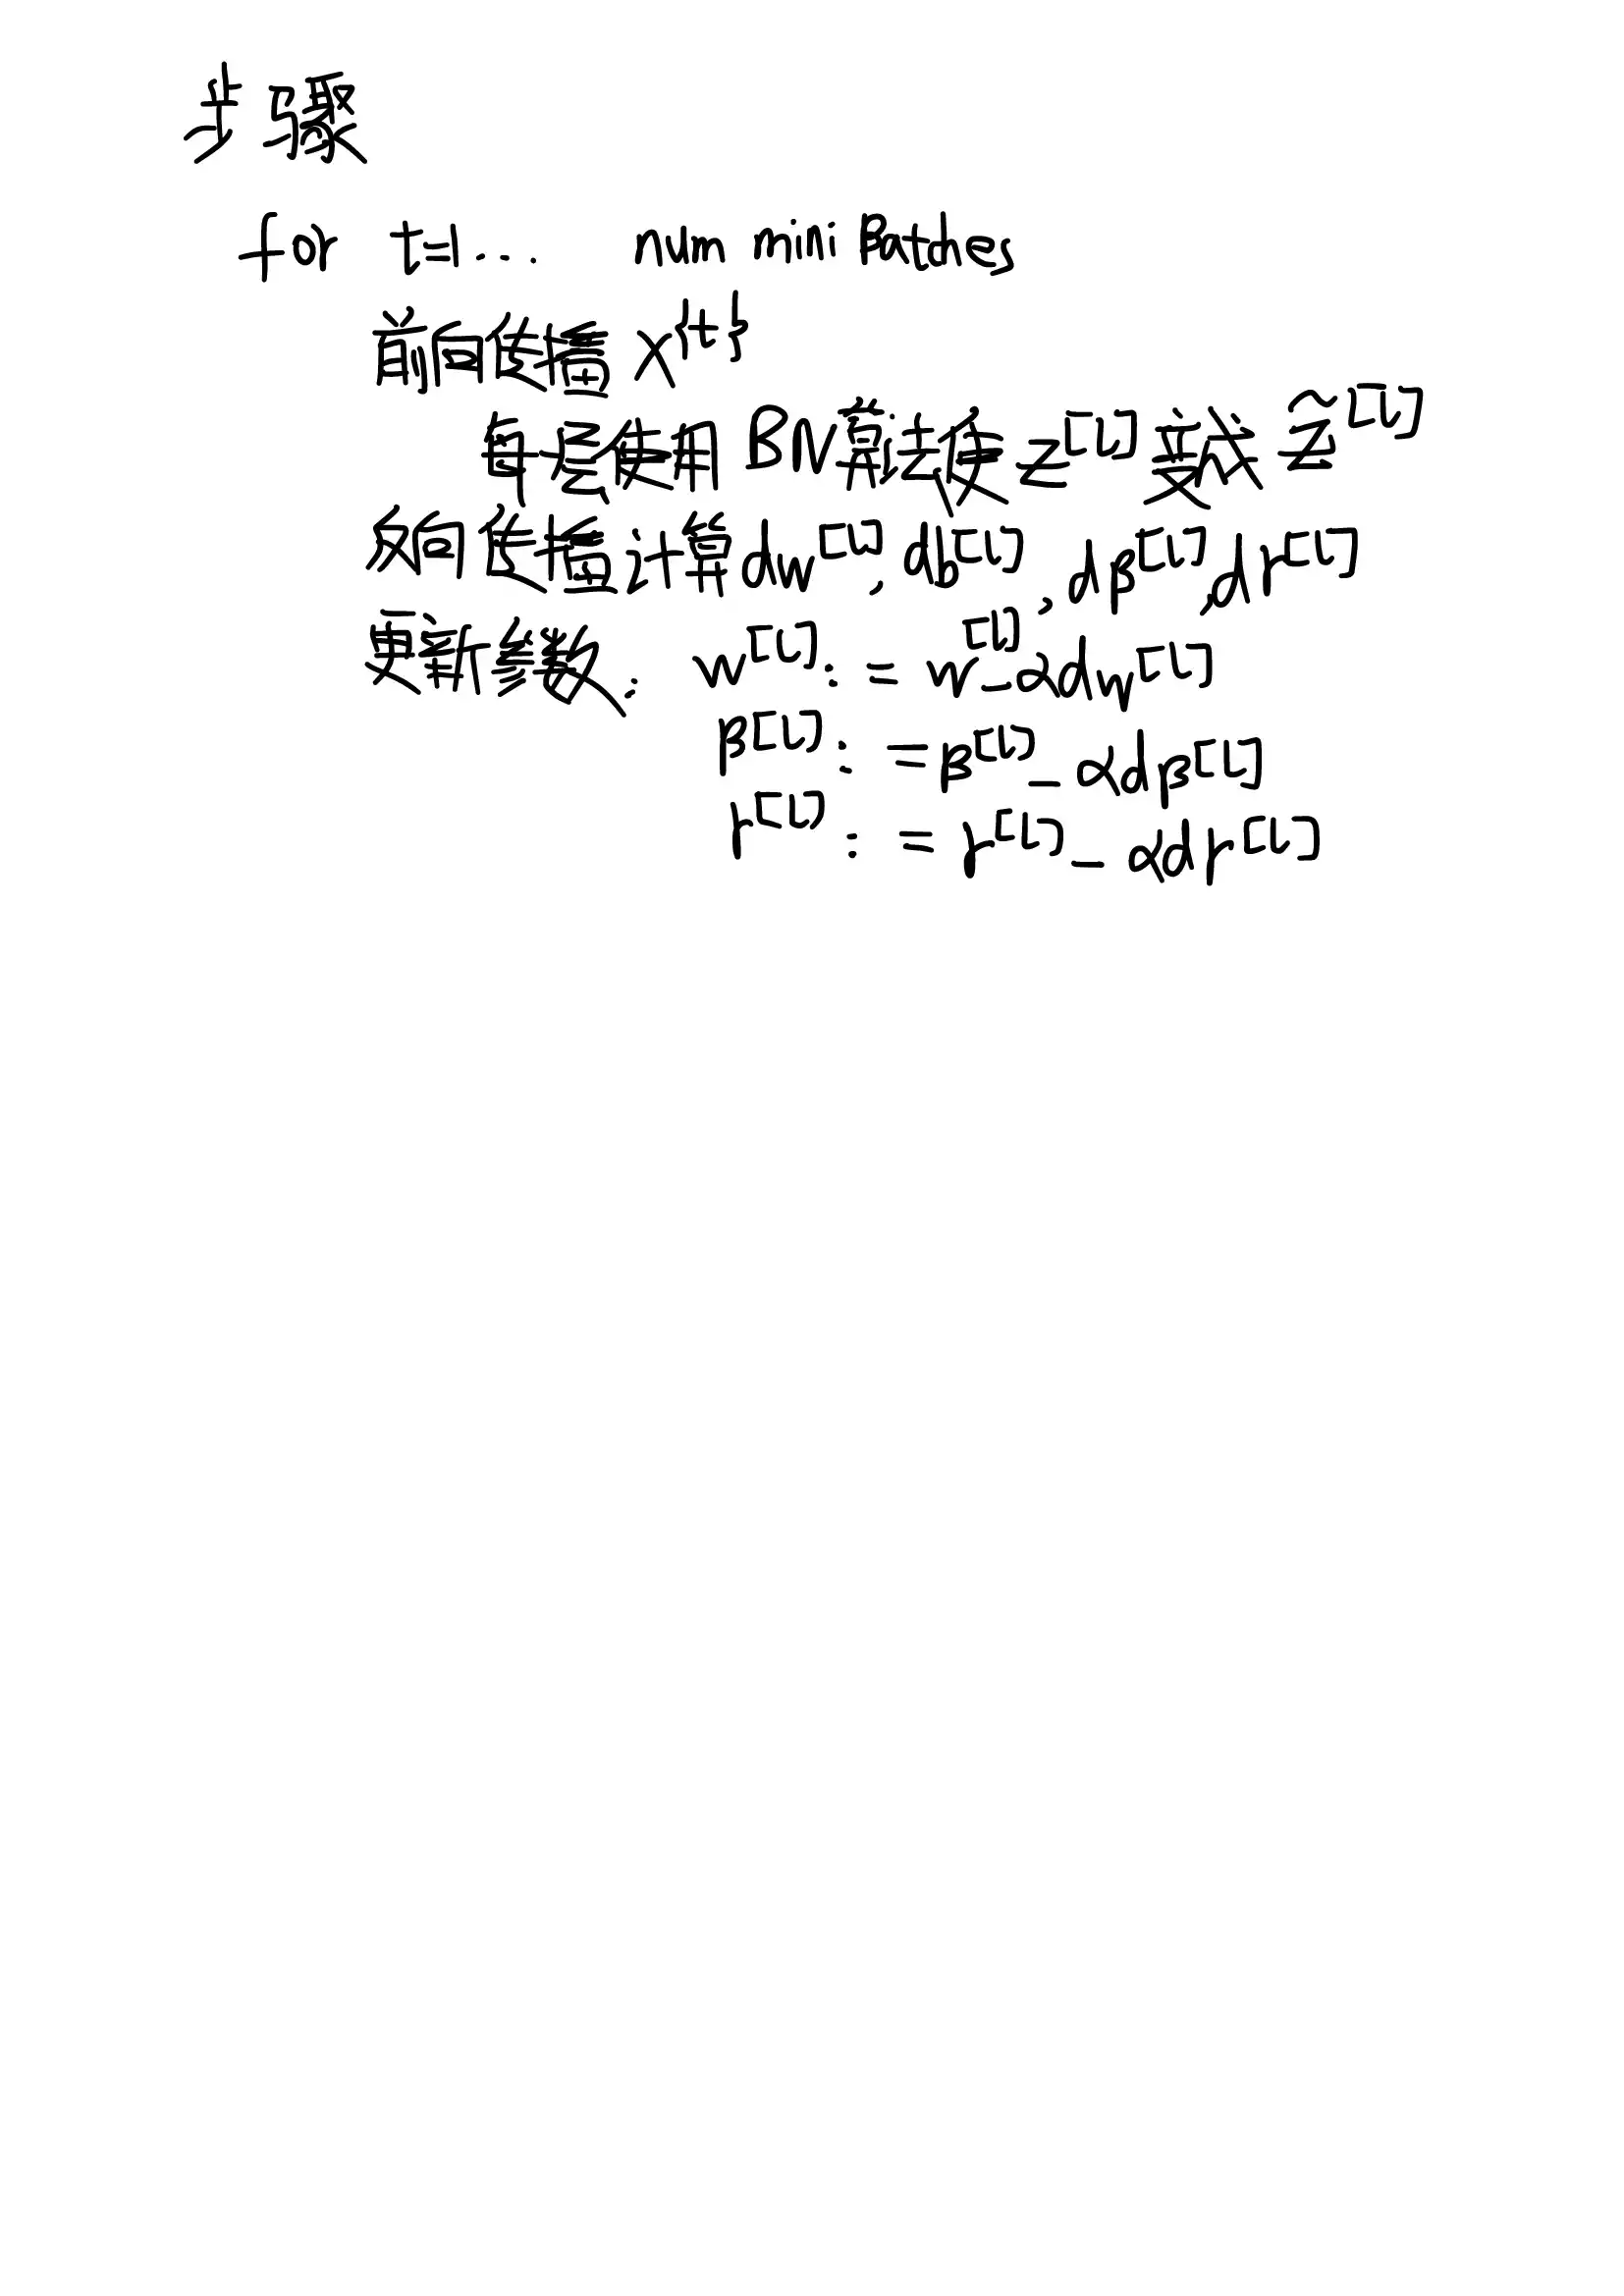 步骤
for t=1... num mini Batches
前向传播 X^{t}
每层使用 BN算法使 z^[l] 变成 z̃^[l]
反向传播计算dw^[l], db^[l], dβ^[l], dr^[l]
更新参数: w^[l] := w^[l] - αdw^[l]
β^[l] := β^[l] - αdβ^[l]
r^[l] := r^[l] - αdr^[l]